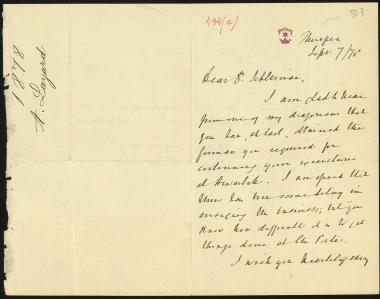 494(a)
563
Therapia
Sept 7/78
1878
A. Layard
Dear Dr. Schliemann,
I am glad to hear
from one of my dragomans that
you have, at last, obtained the
firman you required for
continuing your excavations
at Hissarlik. I am afraid that
there has been some delay in
arranging the business; but you
know how difficult it is to get
things done at the Porte.
I wish you heartily every